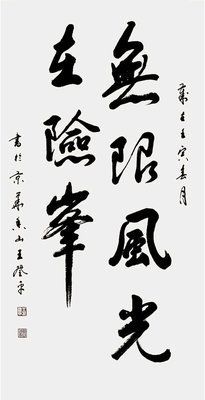 歲在壬寅春月
無限風光
在險峯
書於京華香山王澄宇